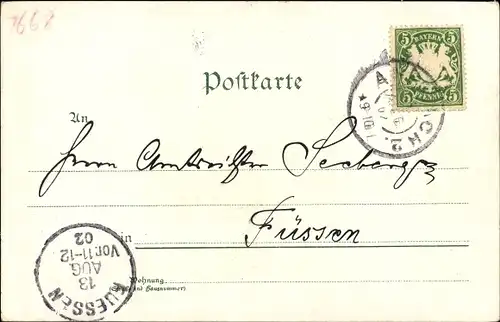 7668
BAYERN
5 5
5 PFENNIG 5
Postkarte
An
Herrn Amtrichter Seeberger
in Füssen
Wohnung
(Straße und Hausnummer)
FUESSEN
13
AUG
Vor.11-12
02